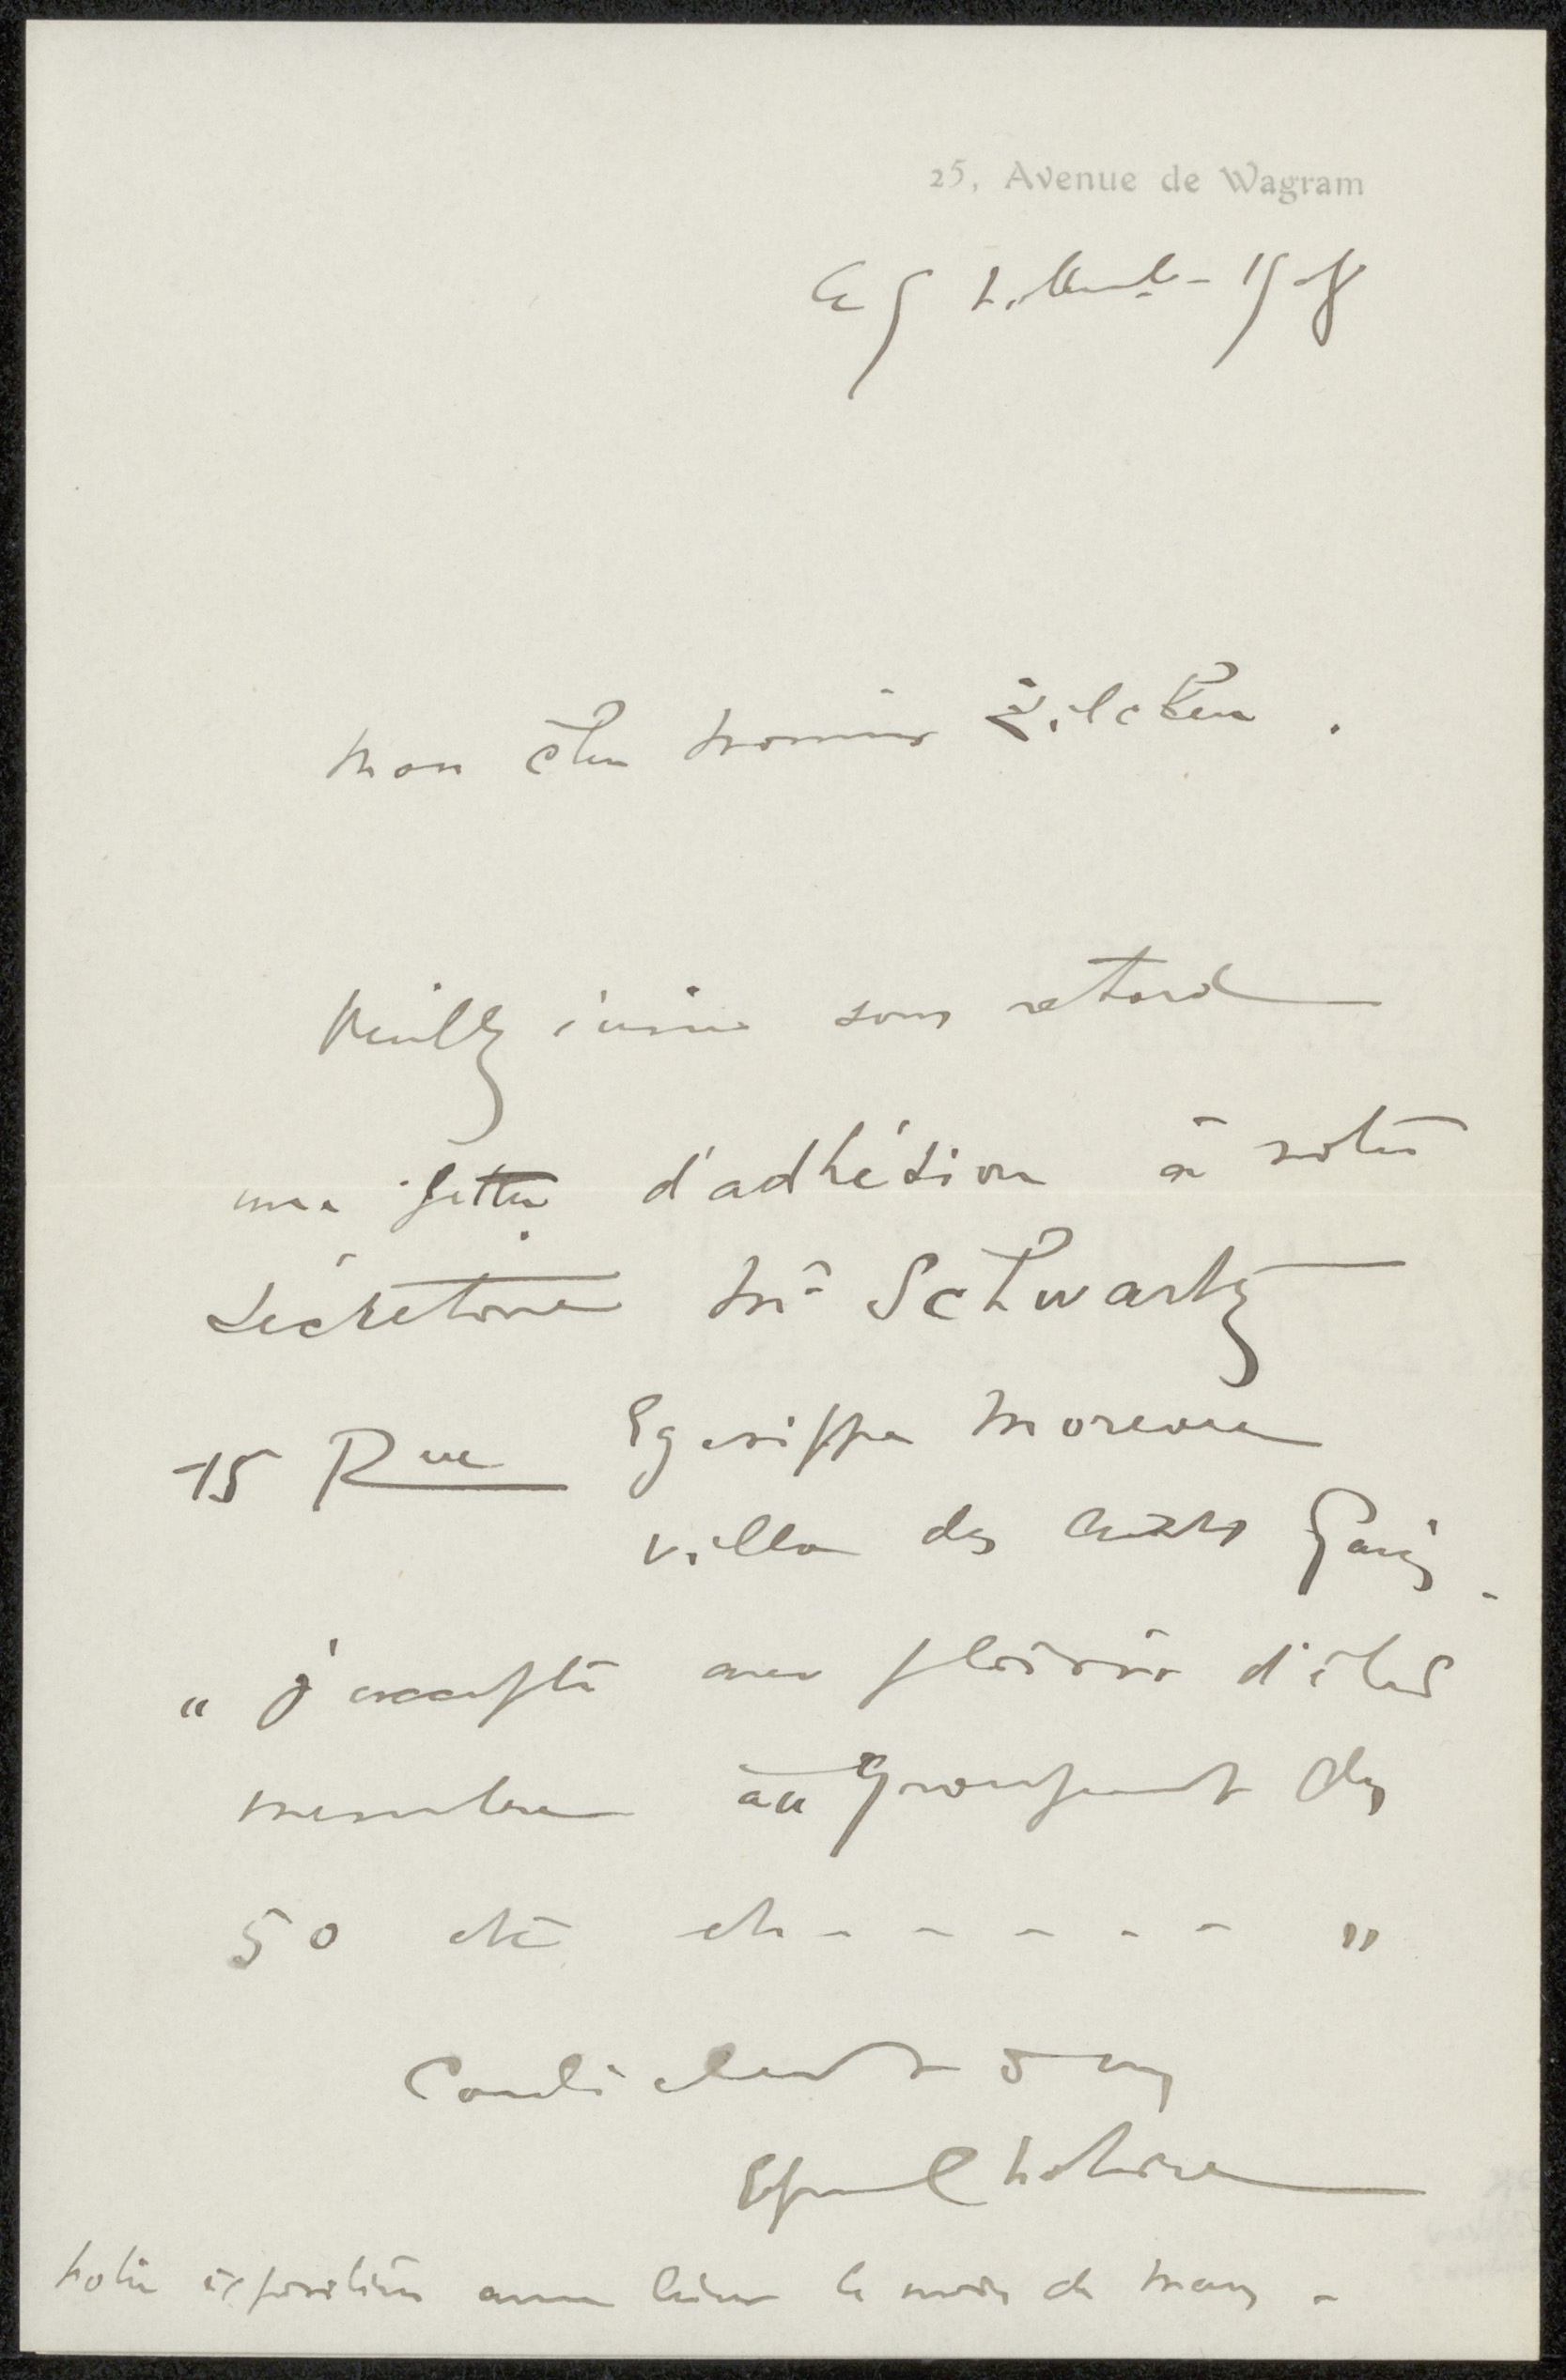 25, Avenue de Wagram
Le 9 1908
Mon cher Monsieur Zilcken.
Veuillez écrire sans retard
une lettre d'adhésion à notre
Sécrétaire Mr Schwartz
15 Rue Egesippe Moreau
villa des Arts Paris.
"j'accepte avec plaisir d'être
membre au Groupement des
50 etc etc - - - - - "
Cordialement à vous
Notre exposition aura lieu le mois de Mars -